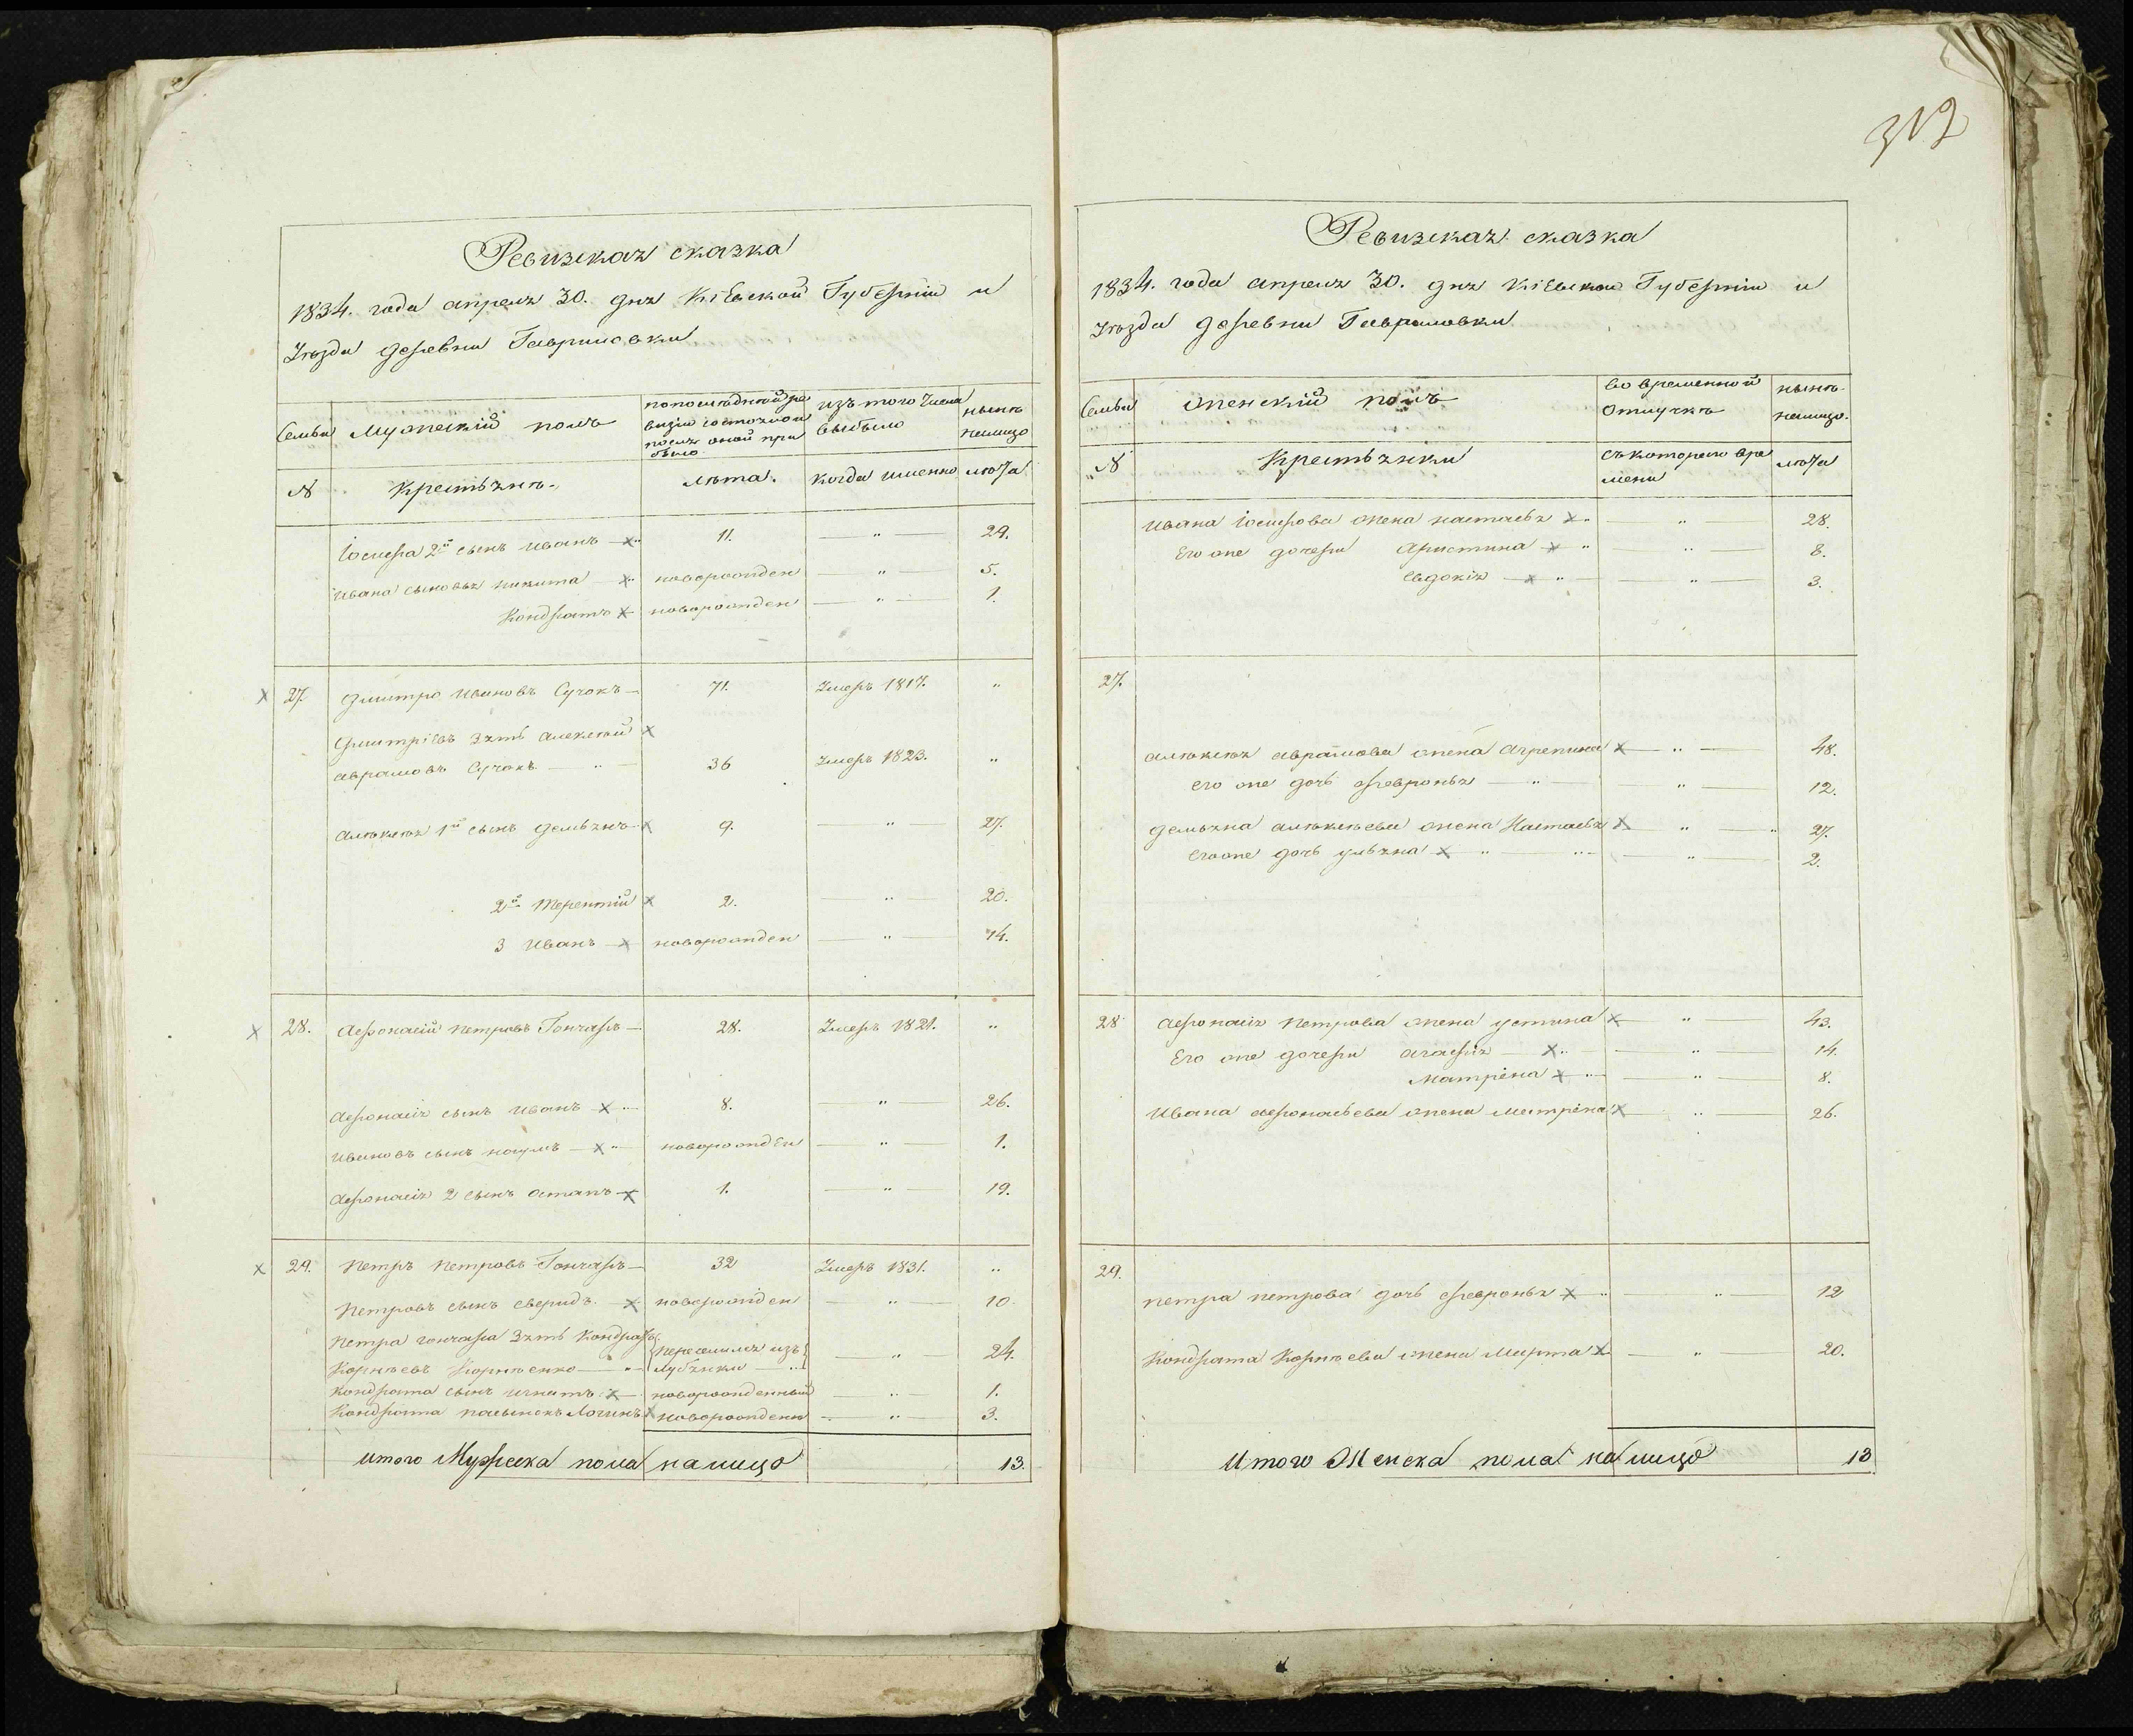 312
Ревизская сказка
1834. года апреля 30. дня Кіевской Губерніи и
Уезда деревни Гавриловки
Семьи
Мужескій полъ
по последней ре
визіи состояло и
после оной при
было
изъ того числа
выбыло
ныне
налицо
№
Крестьяне.
лета.
когда именно
лета
Іосифа 2й сынъ Иванъ
11.
29.
Ивана сыновья Никита
новорожден
5.
Кондратъ
новорожден
1.
27.
Дмитро Ивановъ Сучокъ
71.
Умеръ 1817.
Дмитріевъ Зять Алексей
Аврамовъ Сучокъ
36
Умеръ 1823.
Алексея 1й сынъ Демьянъ
9.
27.
2й Терентій
2.
20.
3 Иванъ
новорожден
14.
28.
Афонасій Петровъ Гончаръ
28.
Умеръ 1821.
Афонасія сынъ Иванъ
8.
26.
Ивановъ сынъ Наумъ
новорожден
1.
Афонасія 2 сынъ Остапъ
1.
19.
29.
Петръ Петровъ Гончаръ
32
Умеръ 1831.
Петровъ сынъ Свиридъ
новорожден
10.
Петра Гончара Зять Кондратъ
Корнеевъ Корнеенко
переселился изъ
24.
Кондрата сынъ Игнатъ
новорожденный
1.
Кондрата пасынокъ Логинъ
новорожден
3.
Итого Мужеска пола налицо
13.
Ревизская сказка
1834. года апреля 30. дня Кіевской Губерніи и
Уезда деревни Гавриловки
Семьи
Женскій полъ
во временной
отлучке
ныне
налицо.
№
Крестьянки
съ котораго вре
мени
лета
Ивана Іосифова жена Настасья
28.
Его же дочери Христина
8.
Евдокія
3.
27.
Алексея Аврамова жена Агрепина
48.
Его же дочь Февронья
12.
Демьяна Алексеева жена Настасья
27.
Его же дочь Ульяна
2.
28
Афонасія Петрова жена Устина
43.
Его же дочери Агафія
14.
Матрена
8.
Ивана Афонасьева жена Матрена
26.
29.
Петра Петрова дочь Февронья
12
Кондрата Корнеева жена Марта
20.
Итого Женска пола налицо
13